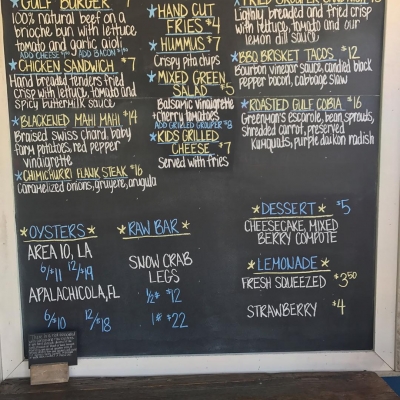 ★ GULF BURGER 7
100% natural beef on a
brioche bun with lettuce,
tomato and garlic aioli
★ CHICKEN SANDWICH $7
Hand breaded tenders fried
crisp with lettuce, tomato and
spicy buttermilk sauce
★ BLACKENED MAHI MAHI $14
Braised swiss chard, baby
potatoes, red pepper
vinaigrette
★ CHIMICHURRI FLANK STEAK $16
Caramelized onions, gruyere, arugula
★ HAND CUT
FRIES $4
★ HUMMUS $7
Crispy pita chips
★ MIXED GREEN
SALAD $5
Balsamic vinaigrette
+ cherry tomatoes
ADD GRILLED GROUPER $8
★ KIDS GRILLED
CHEESE $7
Served with fries
★ FRIED GROUPER SANDWICH
Lightly breaded and fried crisp
with lettuce, tomato and our
lemon dill sauce
★ BBQ BRISKET TACOS $12
Bourbon vinegar sauce, candied black
pepper bacon, cabbage slaw
★ ROASTED GULF COBIA $16
Greenman's escarole, bean sprouts,
shredded carrot, preserved
kumquats, purple daikon radish
★ OYSTERS ★
AREA 10, LA
6/$11 12/$19
APALACHICOLA, FL
6/$10 12/$18
★ RAW BAR ★
SNOW CRAB
LEGS
1/2# $12
1# $22
★ DESSERT ★ $5
CHEESECAKE, MIXED
BERRY COMPOTE
★ LEMONADE ★
FRESH SQUEEZED $3.50
STRAWBERRY $4